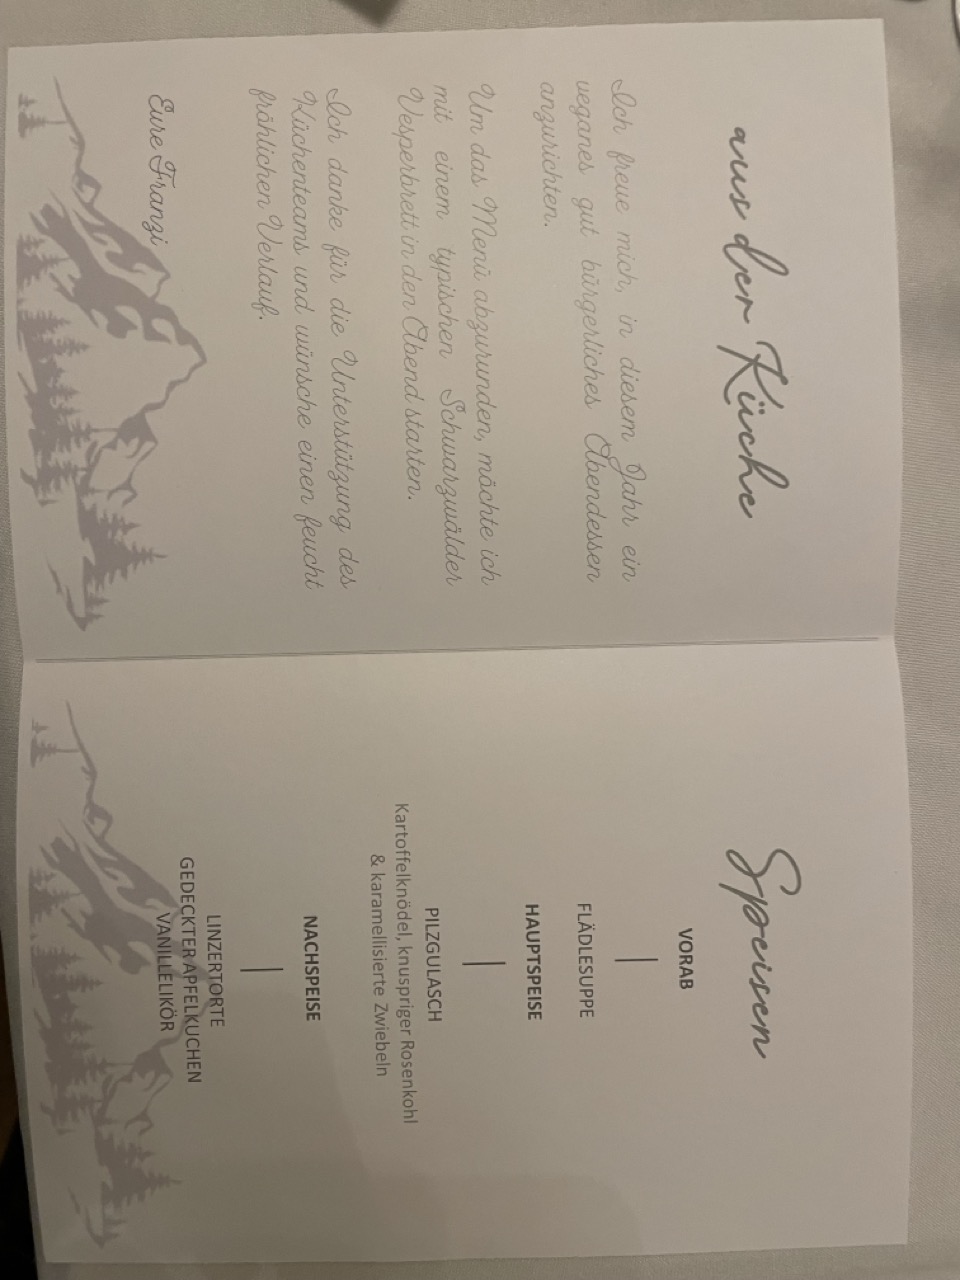 aus der Küche
Ich freue mich, in diesem Jahr ein
veganes gut bürgerliches Abendessen
anzurichten.
Um das Menü abzurunden, möchte ich
mit einem typischen Schwarzwälder
Vesperbrett in den Abend starten.
Ich danke für die Unterstützung des
Küchenteams und wünsche einen feucht
fröhlichen Verlauf.
Eure Franzi
Speisen
VORAB
FLÄDLESUPPE
HAUPTSPEISE
PILZGULASCH
Kartoffelknödel, knuspriger Rosenkohl
& karamellisierte Zwiebeln
NACHSPEISE
LINZERTORTE
GEDECKTER APFELKUCHEN
VANILLELIKÖR